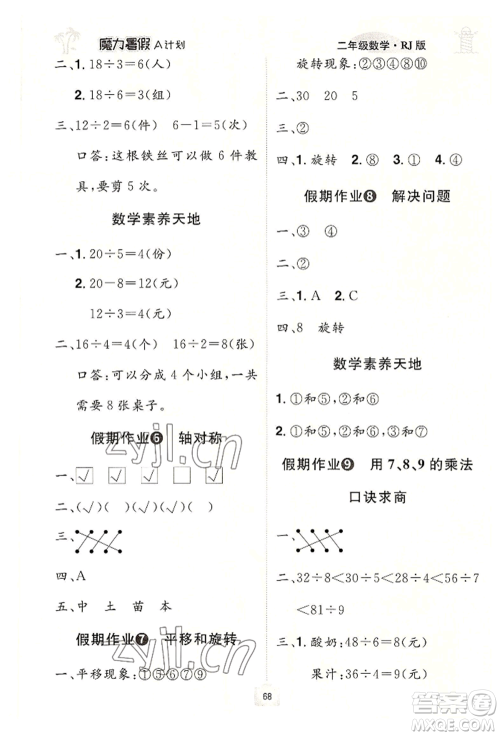 魔力暑假 A计划
二、1. 18÷3=6(人)
2. 18÷3=6(组)
三、12÷2=6(件) 6-1=5(次)
口答：这根铁丝可以做 6 件教
具，要剪 5 次。
数学素养天地
一、1. 20÷5=4(份)
2. 20-8=12(元)
12÷3=4(元)
二、16÷4=4(个) 4×2=8(张)
口答：可以分成 4 个小组，一共
需要 8 张桌子。
假期作业❻ 轴对称
一、☑ ☑ ☐ ☑ ☑
二、(√)(√)( )(√)
三、
四、A
五、中 土 苗 本
假期作业❼ 平移和旋转
一、平移现象：①⑤⑥⑦⑨
二年级数学·RJ版
旋转现象：②③④⑧⑩
二、30 20 5
三、②
四、1. 旋转 2. ⑧ 3. ① 4. ④
假期作业❽ 解决问题
一、③④
二、②
三、1. A 2. C
四、8 旋转
数学素养天地
1. ①和⑤ ②和⑥
2. ①和⑤ ②和⑥
假期作业❾ 用 7、8、9 的乘法
口诀求商
一、
二、32÷8<42÷7<48÷6=56÷7
<81÷9
三、1. 酸奶：40÷8=5(元)
果汁：36÷9=4(元)
68
zyjl.cn
zyjl.cn
答案圈
MXQE.COM